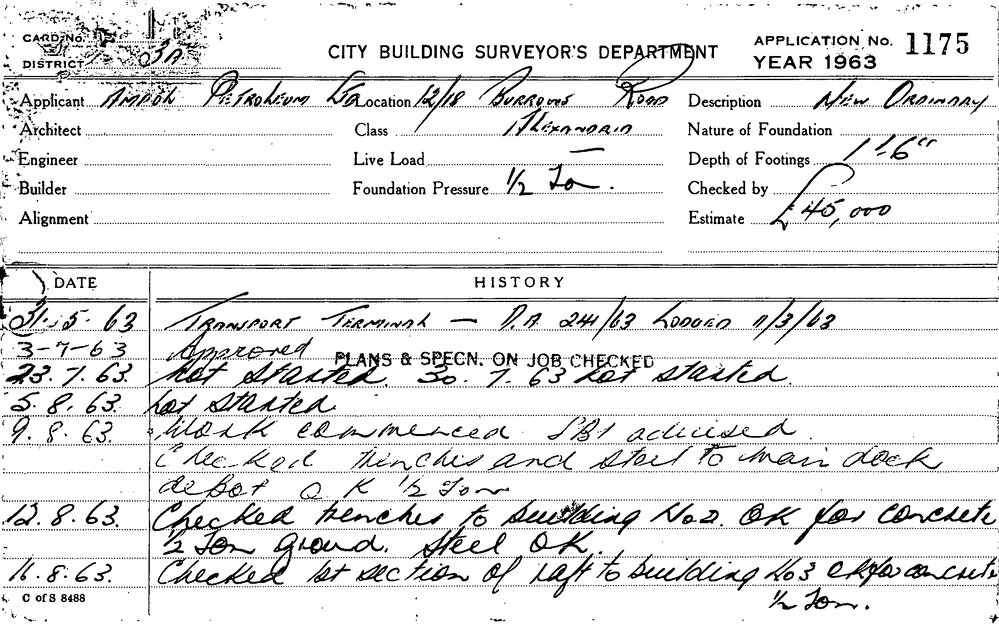 CARD No.
DISTRICT 3A
CITY BUILDING SURVEYOR'S DEPARTMENT
APPLICATION No. 1175
YEAR 1963
Applicant AMPOL PETROLEUM LTD Location 12/18 BURROWS ROAD Description NEW ORDINARY
Architect Class ALEXANDRIA Nature of Foundation
Engineer Live Load — Depth of Footings 1'-6"
Builder Foundation Pressure 1/2 Ton. Checked by
Alignment Estimate £45,000
DATE HISTORY
31.5.63 TRANSPORT TERMINAL — D.A. 241/63 LODGED 11/3/63
3-7-63 Approved
PLANS & SPECN. ON JOB CHECKED
23.7.63. Not Started. 30.7.63 Not started.
5.8.63. Not Started.
9.8.63. Work commenced advised.
Checked trenches and steel to main dock
depot O K 1/2 Ton
12.8.63. Checked trenches to building No2. OK for concrete
1/2 Ton ground. Steel OK.
16.8.63. Checked 1st section of raft to building No3 OK for concrete
1/2 Ton.
C of S 8488